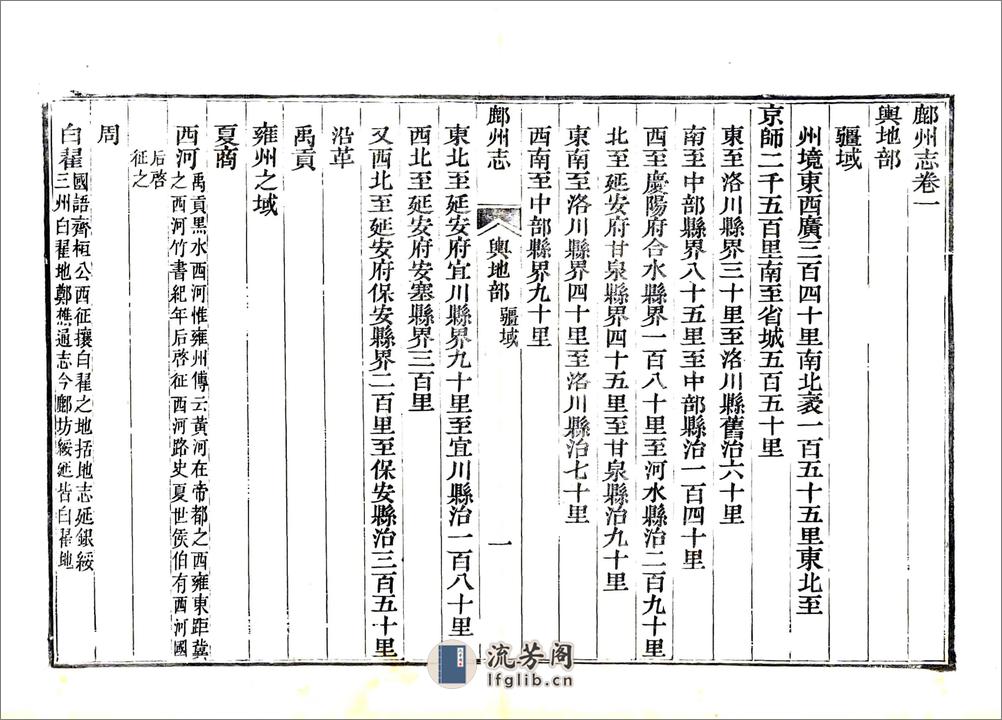 鄜州志卷一
輿地部
疆域
州境東西廣三百四十里南北袤一百五十五里東北至
京師二千五百里南至省城五百五十里
東至洛川縣界三十里至洛川縣舊治六十里
南至中部縣界八十五里至中部縣治一百四十里
西至慶陽府合水縣界一百八十里至河水縣治二百九十里
北至延安府甘泉縣界四十五里至甘泉縣治九十里
東南至洛川縣界四十里至洛川縣治七十里
西南至中部縣界九十里
鄜州志 輿地部 疆域 一
東北至延安府宜川縣界九十里至宜川縣治一百八十里
西北至延安府安塞縣界三百里
又西北至延安府保安縣界二百里至保安縣治三百五十里
沿革
禹貢
雍州之域
夏商
西河禹貢黑水西河惟雍州傅云黃河在帝都之西雍東距冀
之西河竹書紀年后啓征西河路史夏世侯伯有西河國
后啓
征之
周
白翟國語齊桓公西征攘白翟之地括地志延銀綏
三州白翟地鄭樵通志今鄜坊綏延皆白翟地
流芳阁
lfglib.cn